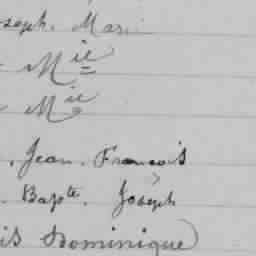 oseph. Mari
Mie
Mie
. Jean. François
. Bapte. Joseph
is Dominique